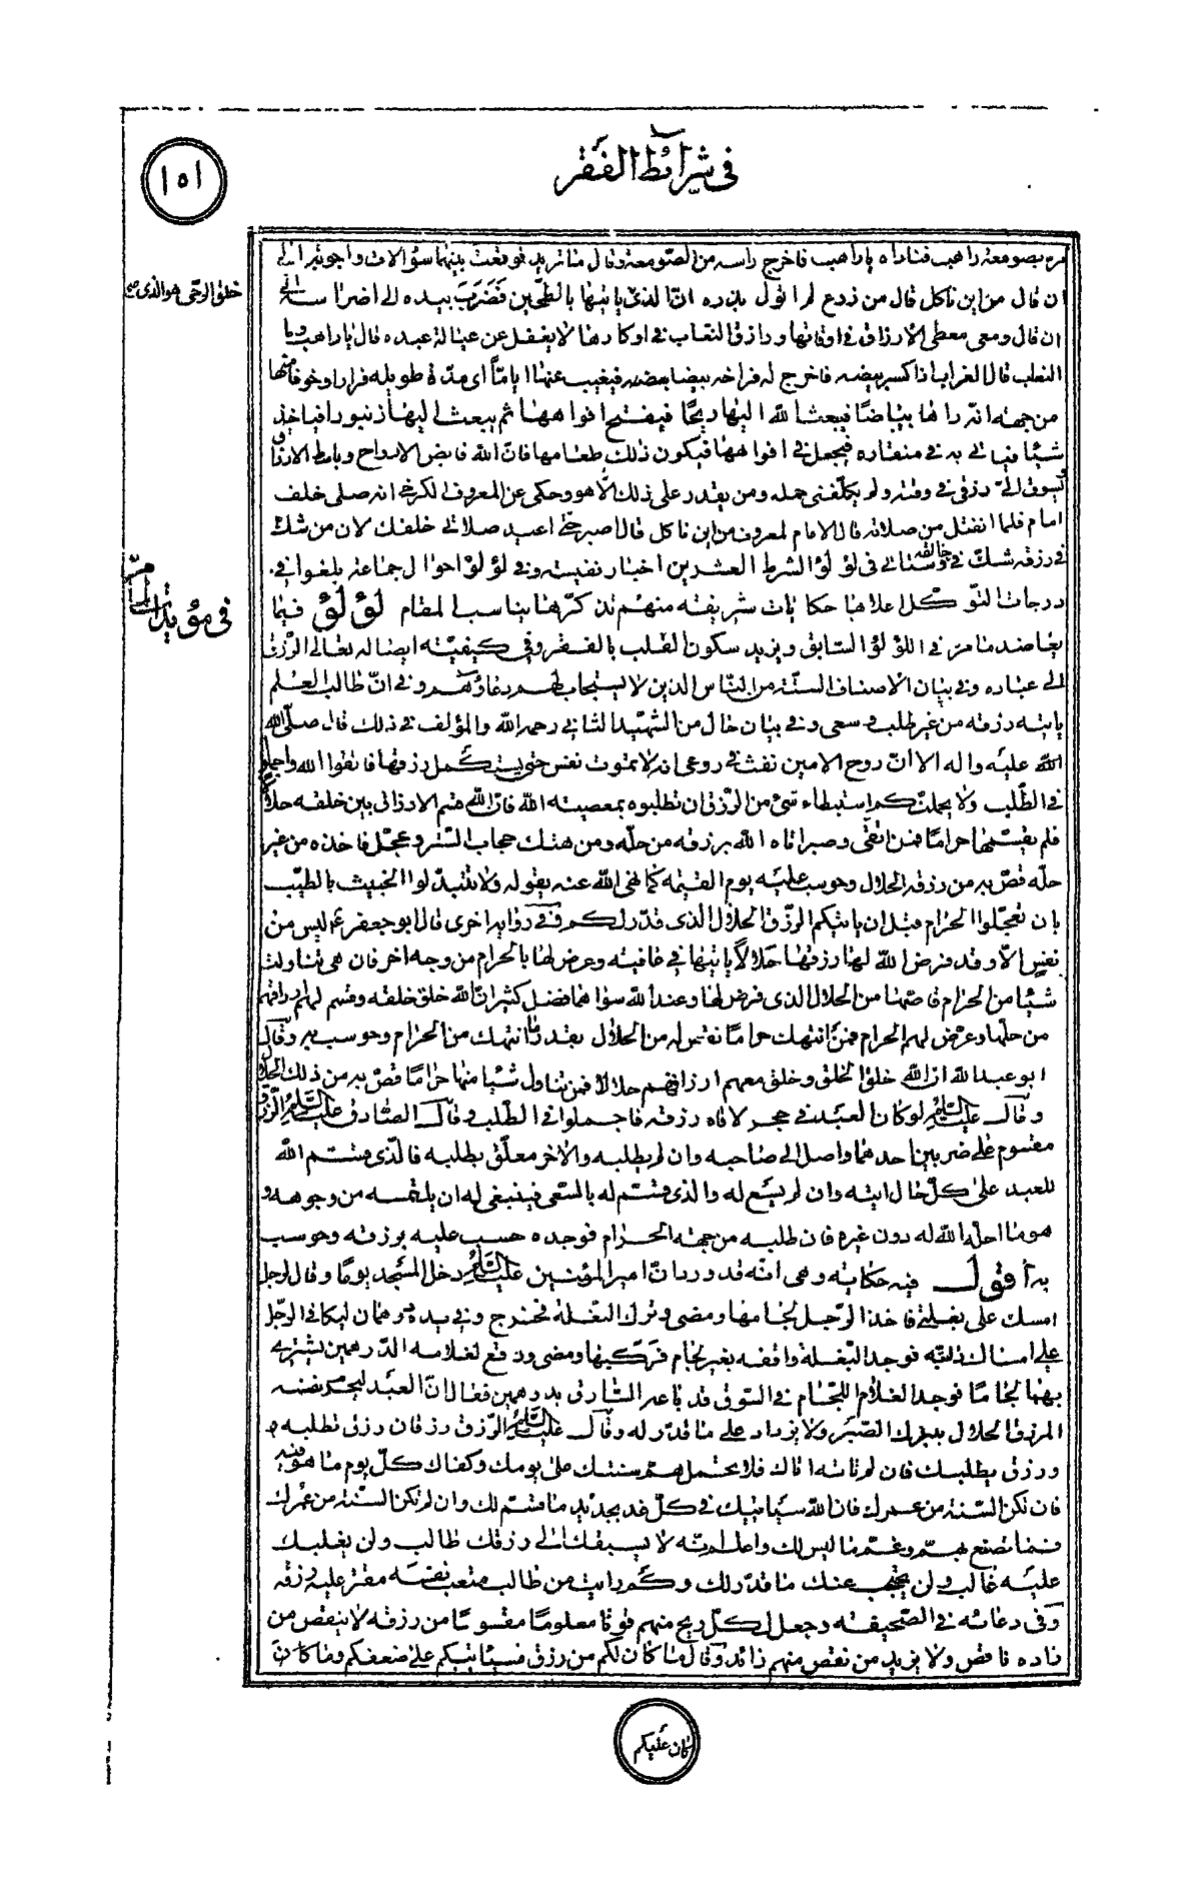 في شرائط الفقر
١٥١
مره بصومعة راهب فناداه يا راهب فاخرج راسه من الصومعة وقال ما تريد فوقعت بينهما سؤالات واجوبة الى
ان قال من اين تاكل قال من زرع لم اتول بذره ان الذي ياتيها بالطحين فضرب بيده الى اضراسه الى
خلق الرحى هو الذي
ان قال ومعي معطي الارزاق في اوقاتها ورازق النعاب في اوكارها لا يغفل عن عيالة عبده قال يا راهب وما
النعاب قال الغراب اذا كسر بيضه فاخرج له فراخه بيضا بعضه فيغيب عنها اياما اى مدة طويلة فرارا وخوفا منها
من جهة انه راها بياضا فيبعث الله اليها ريحا فيفتح افواهها ثم يبعث اليها زنبورا فياخذ
شيئا فياتي به في منقاره فيجعل في افواهها فيكون ذلك طعامها فان الله قابض الارواح وباسط الارزاق
يسوق الى رزقي في وقته ولم يكلفني حمله ومن يقدر على ذلك الا هو وحكى عن المعروف الكرخى انه صلى خلف
امام فلما انفتل من صلاته قال الامام لمعروف من اين تاكل قال اصبر حتى اعيد صلاتي خلفك لان من شك
في رزقه شك في خالقه وستاتي في لؤلؤ الشرط العشرين اخبار نفيسة وفي لؤلؤ احوال جماعة بلغوا في
درجات التوكل اعلاها حكايات شريفة منهم تذكرها يناسب المقام لؤلؤ فيما
في مؤيدات ما مر
يعاضد ما مر في اللؤلؤ السابق ويزيد سكون القلب بالفقر وفي كيفية ايصاله تعالى الرزق
الى عباده وفي بيان الاصناف الستة من الناس الذين لا يستجاب لهم دعاؤهم وفي ان طالب العلم
ياتيه رزقه من غير طلب وسعى وفي بيان حال من الشهيد الثاني رحمه الله والمؤلف في ذلك قال صلى الله
الله عليه واله الا ان روح الامين نفث في روعى انه لا تموت نفس حتى يستكمل رزقها فاتقوا الله واجملوا
في الطلب ولا يحملنكم استبطاء شئ من الرزق ان تطلبوه بمعصية الله فان الله قسم الارزاق بين خلقه حلالا
فلم يقسمها حراما فمن اتقى وصبر اتاه الله برزقه من حله ومن هتك حجاب الستر وعجل فاخذه من غير
حله قص به من رزقه الحلال وحوسب عليه يوم القيمة كما نهى الله عنه بقوله ولا تتبدلوا الخبيث بالطيب
بان تعجلوا الحرام قبل ان ياتيكم الرزق الحلال الذى قدر لكم وفي رواية اخرى قال ابو جعفر ع ليس من
نفس الا وقد فرض الله لها رزقها حلالا ياتيها في عافية وعرض لها بالحرام من وجه اخر فان هي تناولت
شيئا من الحرام قاصها من الحلال الذى فرض لها وعند الله سواهما فضل كثير ان الله خلق خلقه وقسم لهم ارزاقهم
من حلها وعرض لهم الحرام فمن انتهك حراما نقص له من الحلال بقدر ما انتهك من الحرام وحوسب به وقال
ابو عبد الله ان الله خلق الخلق وخلق معهم ارزاقهم حلالا فمن تناول شيئا منها حراما قص به من ذلك الحلال
وقال عليه السلام لو كان العبد في حجر لاتاه رزقه فاجملوا في الطلب وقال الصادق عليه السلام الرزق
مقسوم على ضربين احدهما واصل الى صاحبه وان لم يطلبه والاخر معلق بطلبه فالذى قسم الله
للعبد على كل حال اتيه وان لم يسع له والذى قسم له بالسعى فينبغي له ان يلتمسه من وجوهه و
هو ما احله الله له دون غيره فان طلبه من جهة الحرام فوجده حسب عليه برزقه وحوسب
به أقول فيه حكاية وهى انه قد ورد ان امير المؤمنين عليه السلام دخل المسجد يوما وقال لرجل
امسك على بغلتي فاخذ الرجل لجامها ومضى وترك البغلة فخرج وفي يده درهمان ليكافئ الرجل
على امساك دابته فوجد البغلة واقفة بغير لجام فركبها ومضى ودفع لغلامه الدرهمين ليشتري
بهما لجاما فوجد الغلام اللجام في السوق قد باعه السارق بدرهمين فقال ان العبد ليحرم نفسه
الرزق الحلال بترك الصبر ولا يزداد على ما قدر له وقال عليه السلام الرزق رزقان رزق تطلبه و
ورزق يطلبك فان لم تاته اتاك فلا تحتمل هم سنتك على يومك وكفاك كل يوم ما هو فيه
فان تكن السنة من عمرك فان الله سياتيك في كل غد بجديد ما قسم لك وان لم تكن السنة من عمرك
فما تصنع بهم وغم ما ليس لك واعلم انه لا يسبقك الى رزقك طالب ولن يغلبك
عليه غالب ولن يحتجب عنك ما قدر لك وكم رايت من طالب متعب نفسه مقتر عليه رزقه
وفى دعائه في الصحيفة وجعل لكل روح منهم قوتا معلوما مقسوما من رزقه لا ينقص من
زاده ناقص ولا يزيد من نقص منهم زائد وقال ما كان لكم من رزق فسياتيكم على ضعفكم وما كان
كان عليكم